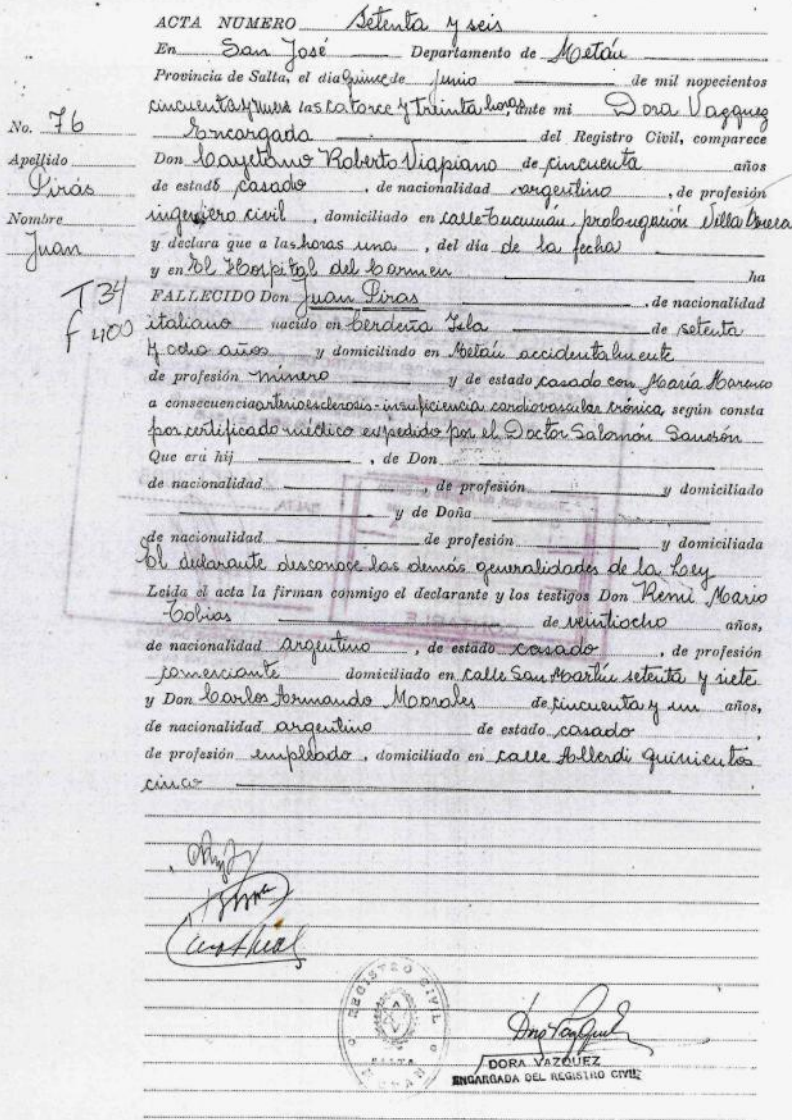 ACTA NUMERO Setenta y seis
En San José Departamento de Metán
Provincia de Salta, el dia quince de junio de mil nopecientos
cincuenta y nueve las catorce y treinta horas, ante mi Dora Vazquez
Encargada del Registro Civil, comparece
Don Cayetano Roberto Viapiano de cincuenta años
de estado casado, de nacionalidad argentino, de profesión
ingeniero civil, domiciliado en calle Tucumán, prolongación Villa
y declara que a las horas una, del día de la fecha
y en El Hospital del Carmen ha
FALLECIDO Don Juan Piras, de nacionalidad
italiano nacido en Cerdeña Isla de setenta
y ocho años y domiciliado en Metán accidentalmente
de profesión minero y de estado casado con María
a consecuencia arterioesclerosis - insuficiencia cardiovascular crónica, según consta
por certificado médico expedido por el Doctor Salomón
Que era hij , de Don
de nacionalidad , de profesión y domiciliado
y de Doña
de nacionalidad de profesión y domiciliada
El declarante desconoce las demás generalidades de la Ley
Leida el acta la firman conmigo el declarante y los testigos Don René Mario
Tobias de veintiocho años,
de nacionalidad argentino, de estado casado, de profesión
comerciante domiciliado en calle San Martín setenta y siete
y Don Carlos Armando Morales de cincuenta y un años,
de nacionalidad argentino de estado casado,
de profesión empleado, domiciliado en calle Alberdi quinientos
cinco
No. 76
Apellido
Pirás
Nombre
Juan
T 34
f 400
REGISTRO CIVIL
SALTA
METAN
DORA VAZQUEZ
ENCARGADA DEL REGISTRO CIVIL